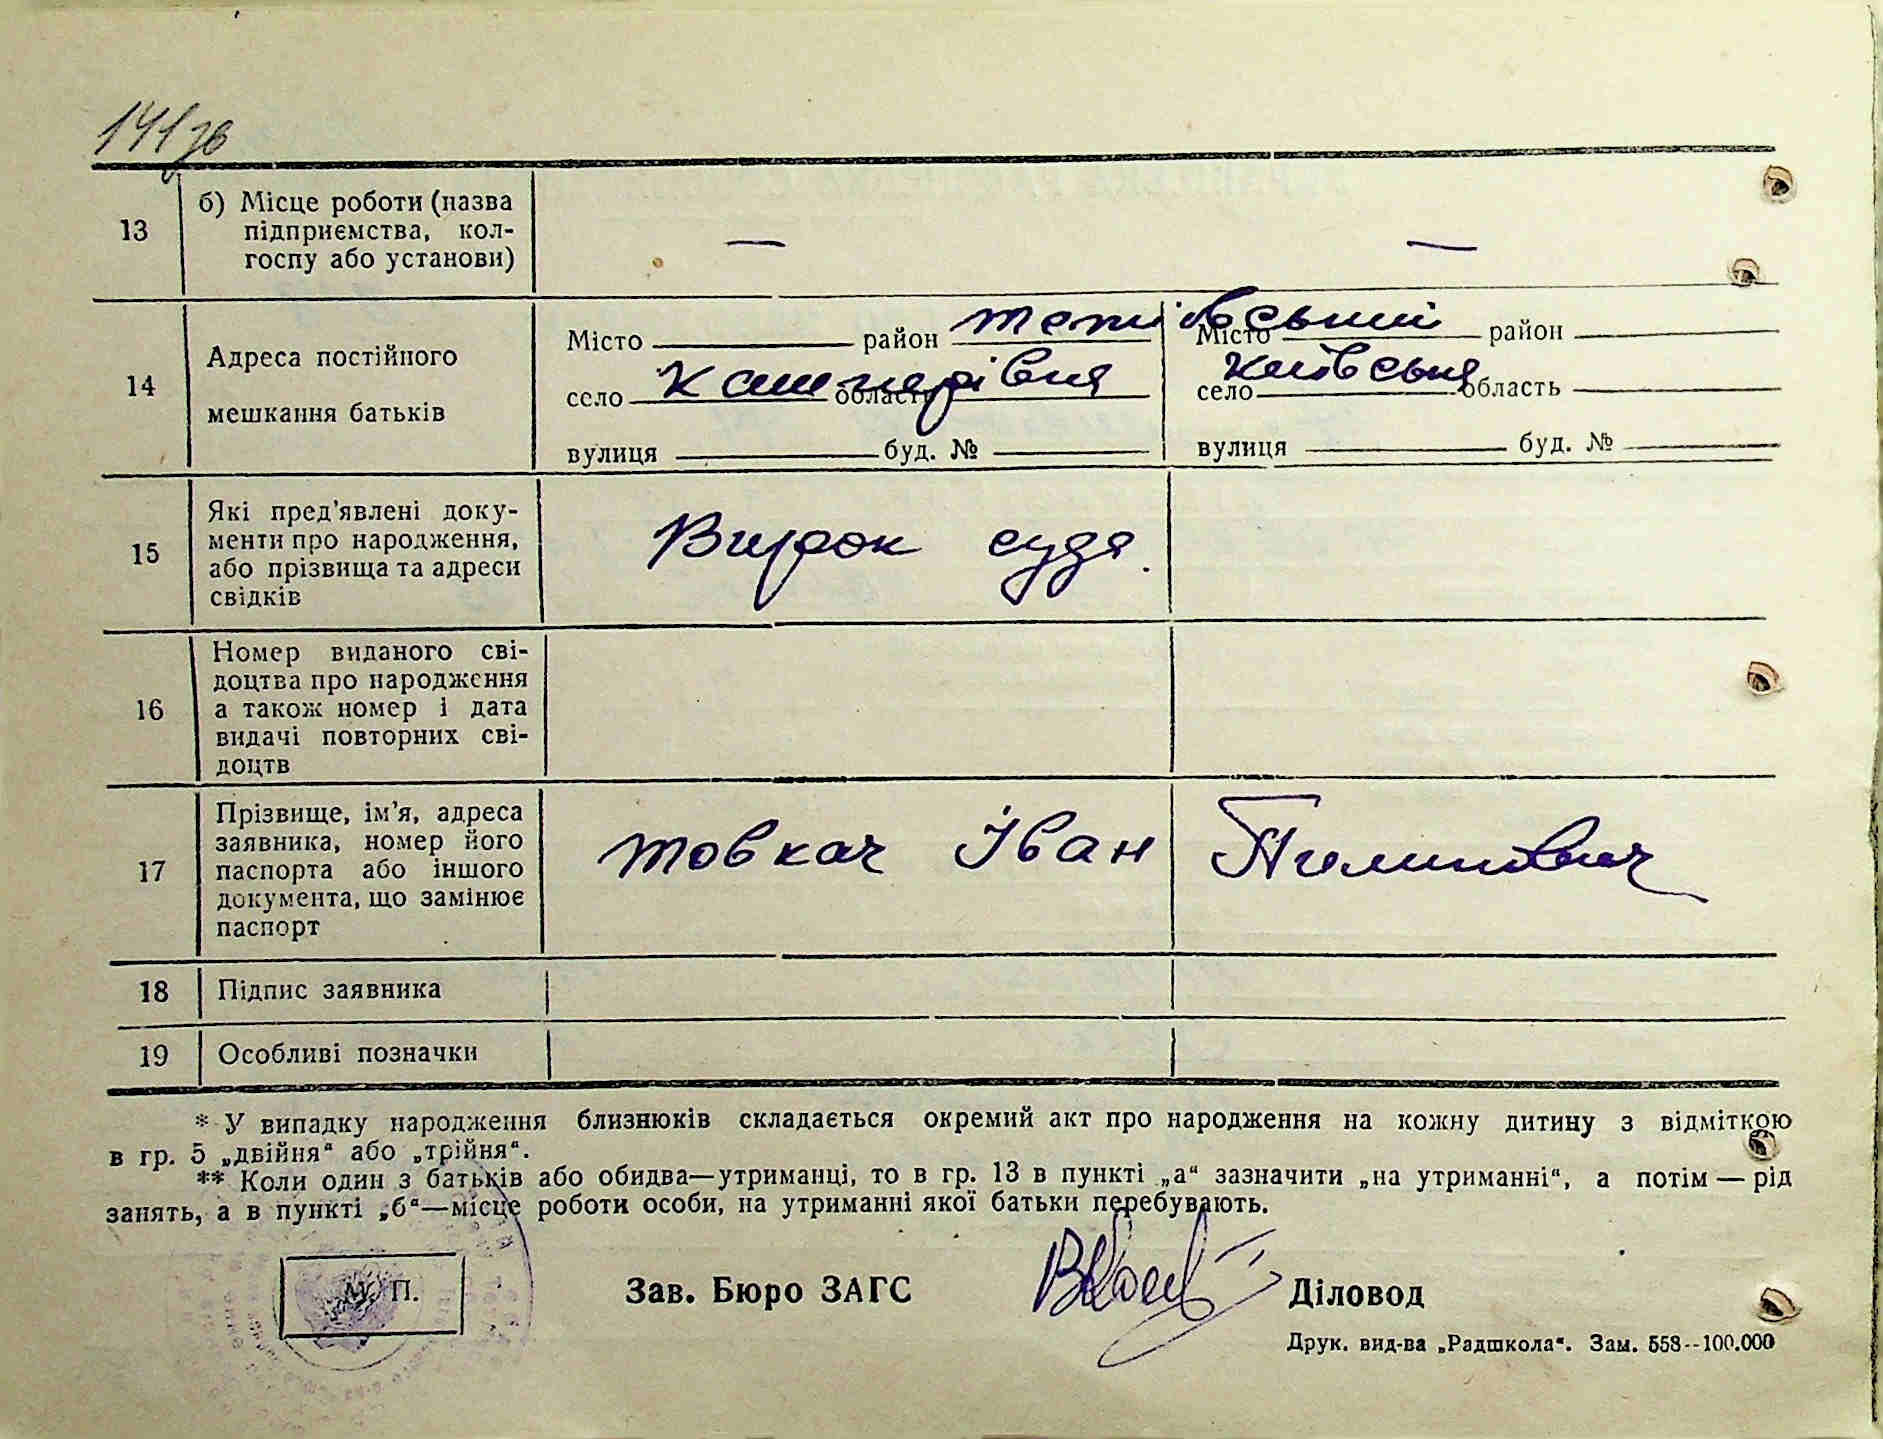 141зв
13 б) Місце роботи (назва
підприємства, кол-
госпу або установи) — —
14 Адреса постійного
мешкання батьків
Місто район тетіївський Місто район
село Кашперівка область Київська село область
вулиця буд. № вулиця буд. №
15 Які пред'явлені доку-
менти про народження,
або прізвища та адреси
свідків
Вирок суда.
16 Номер виданого сві-
доцтва про народження
а також номер і дата
видачі повторних сві-
доцтв
17 Прізвище, ім'я, адреса
заявника, номер його
паспорта або іншого
документа, що замінює
паспорт
Товкач Іван Пилипович
18 Підпис заявника
19 Особливі позначки
* У випадку народження близнюків складається окремий акт про народження на кожну дитину з відміткою
в гр. 5 „двійня" або „трійня".
** Коли один з батьків або обидва—утриманці, то в гр. 13 в пункті „а" зазначити „на утриманні", а потім — рід
занять, а в пункті „б"—місце роботи особи, на утриманні якої батьки перебувають.
М. П. Зав. Бюро ЗАГС Діловод
Друк. вид-ва „Радшкола". Зам. 558--100.000